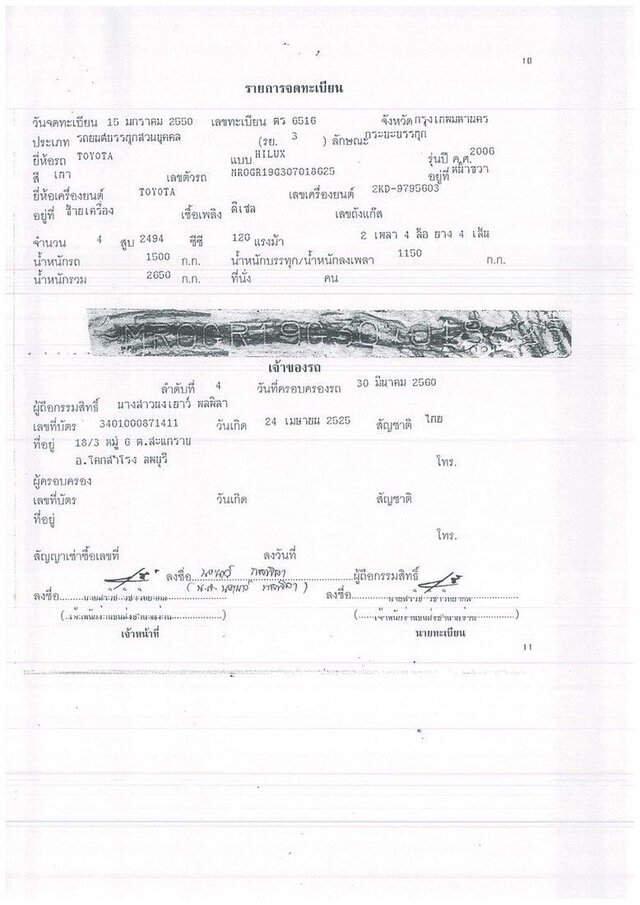 10
รายการจดทะเบียน
วันจดทะเบียน 15 มกราคม 2550 เลขทะเบียน ตร 6516 จังหวัด กรุงเทพมหานคร
ประเภท รถยนต์บรรทุกส่วนบุคคล (รย. 3 ) ลักษณะ กระบะบรรทุก
ยี่ห้อรถ TOYOTA แบบ HILUX รุ่นปี ค.ศ. 2006
สี เทา เลขตัวรถ MR0GR19G307018625 อยู่ที่ หน้าขวา
ยี่ห้อเครื่องยนต์ TOYOTA เลขเครื่องยนต์ 2KD-9795603
อยู่ที่ ซ้ายเครื่อง เชื้อเพลิง ดีเซล เลขถังแก๊ส
จำนวน 4 สูบ 2494 ซีซี 120 แรงม้า 2 เพลา 4 ล้อ ยาง 4 เส้น
น้ำหนักรถ 1500 ก.ก. น้ำหนักบรรทุก/น้ำหนักลงเพลา 1150 ก.ก.
น้ำหนักรวม 2650 ก.ก. ที่นั่ง คน
เจ้าของรถ
ลำดับที่ 4 วันที่ครอบครองรถ 30 มีนาคม 2560
ผู้ถือกรรมสิทธิ์ นางสาวนงเยาว์ พลพิลา
เลขที่บัตร 3401000871411 วันเกิด 24 เมษายน 2525 สัญชาติ ไทย
ที่อยู่ 18/3 หมู่ 6 ต.สะแกราบ
อ.โคกสำโรง ลพบุรี โทร.
ผู้ครอบครอง
เลขที่บัตร วันเกิด สัญชาติ
ที่อยู่
โทร.
สัญญาเช่าซื้อเลขที่ ลงวันที่
ลงชื่อ นงเยาว์ พลพิลา ผู้ถือกรรมสิทธิ์
ลงชื่อ (น.ส. นงเยาว์ พลพิลา) ลงชื่อ
เจ้าหน้าที่ นายทะเบียน
11